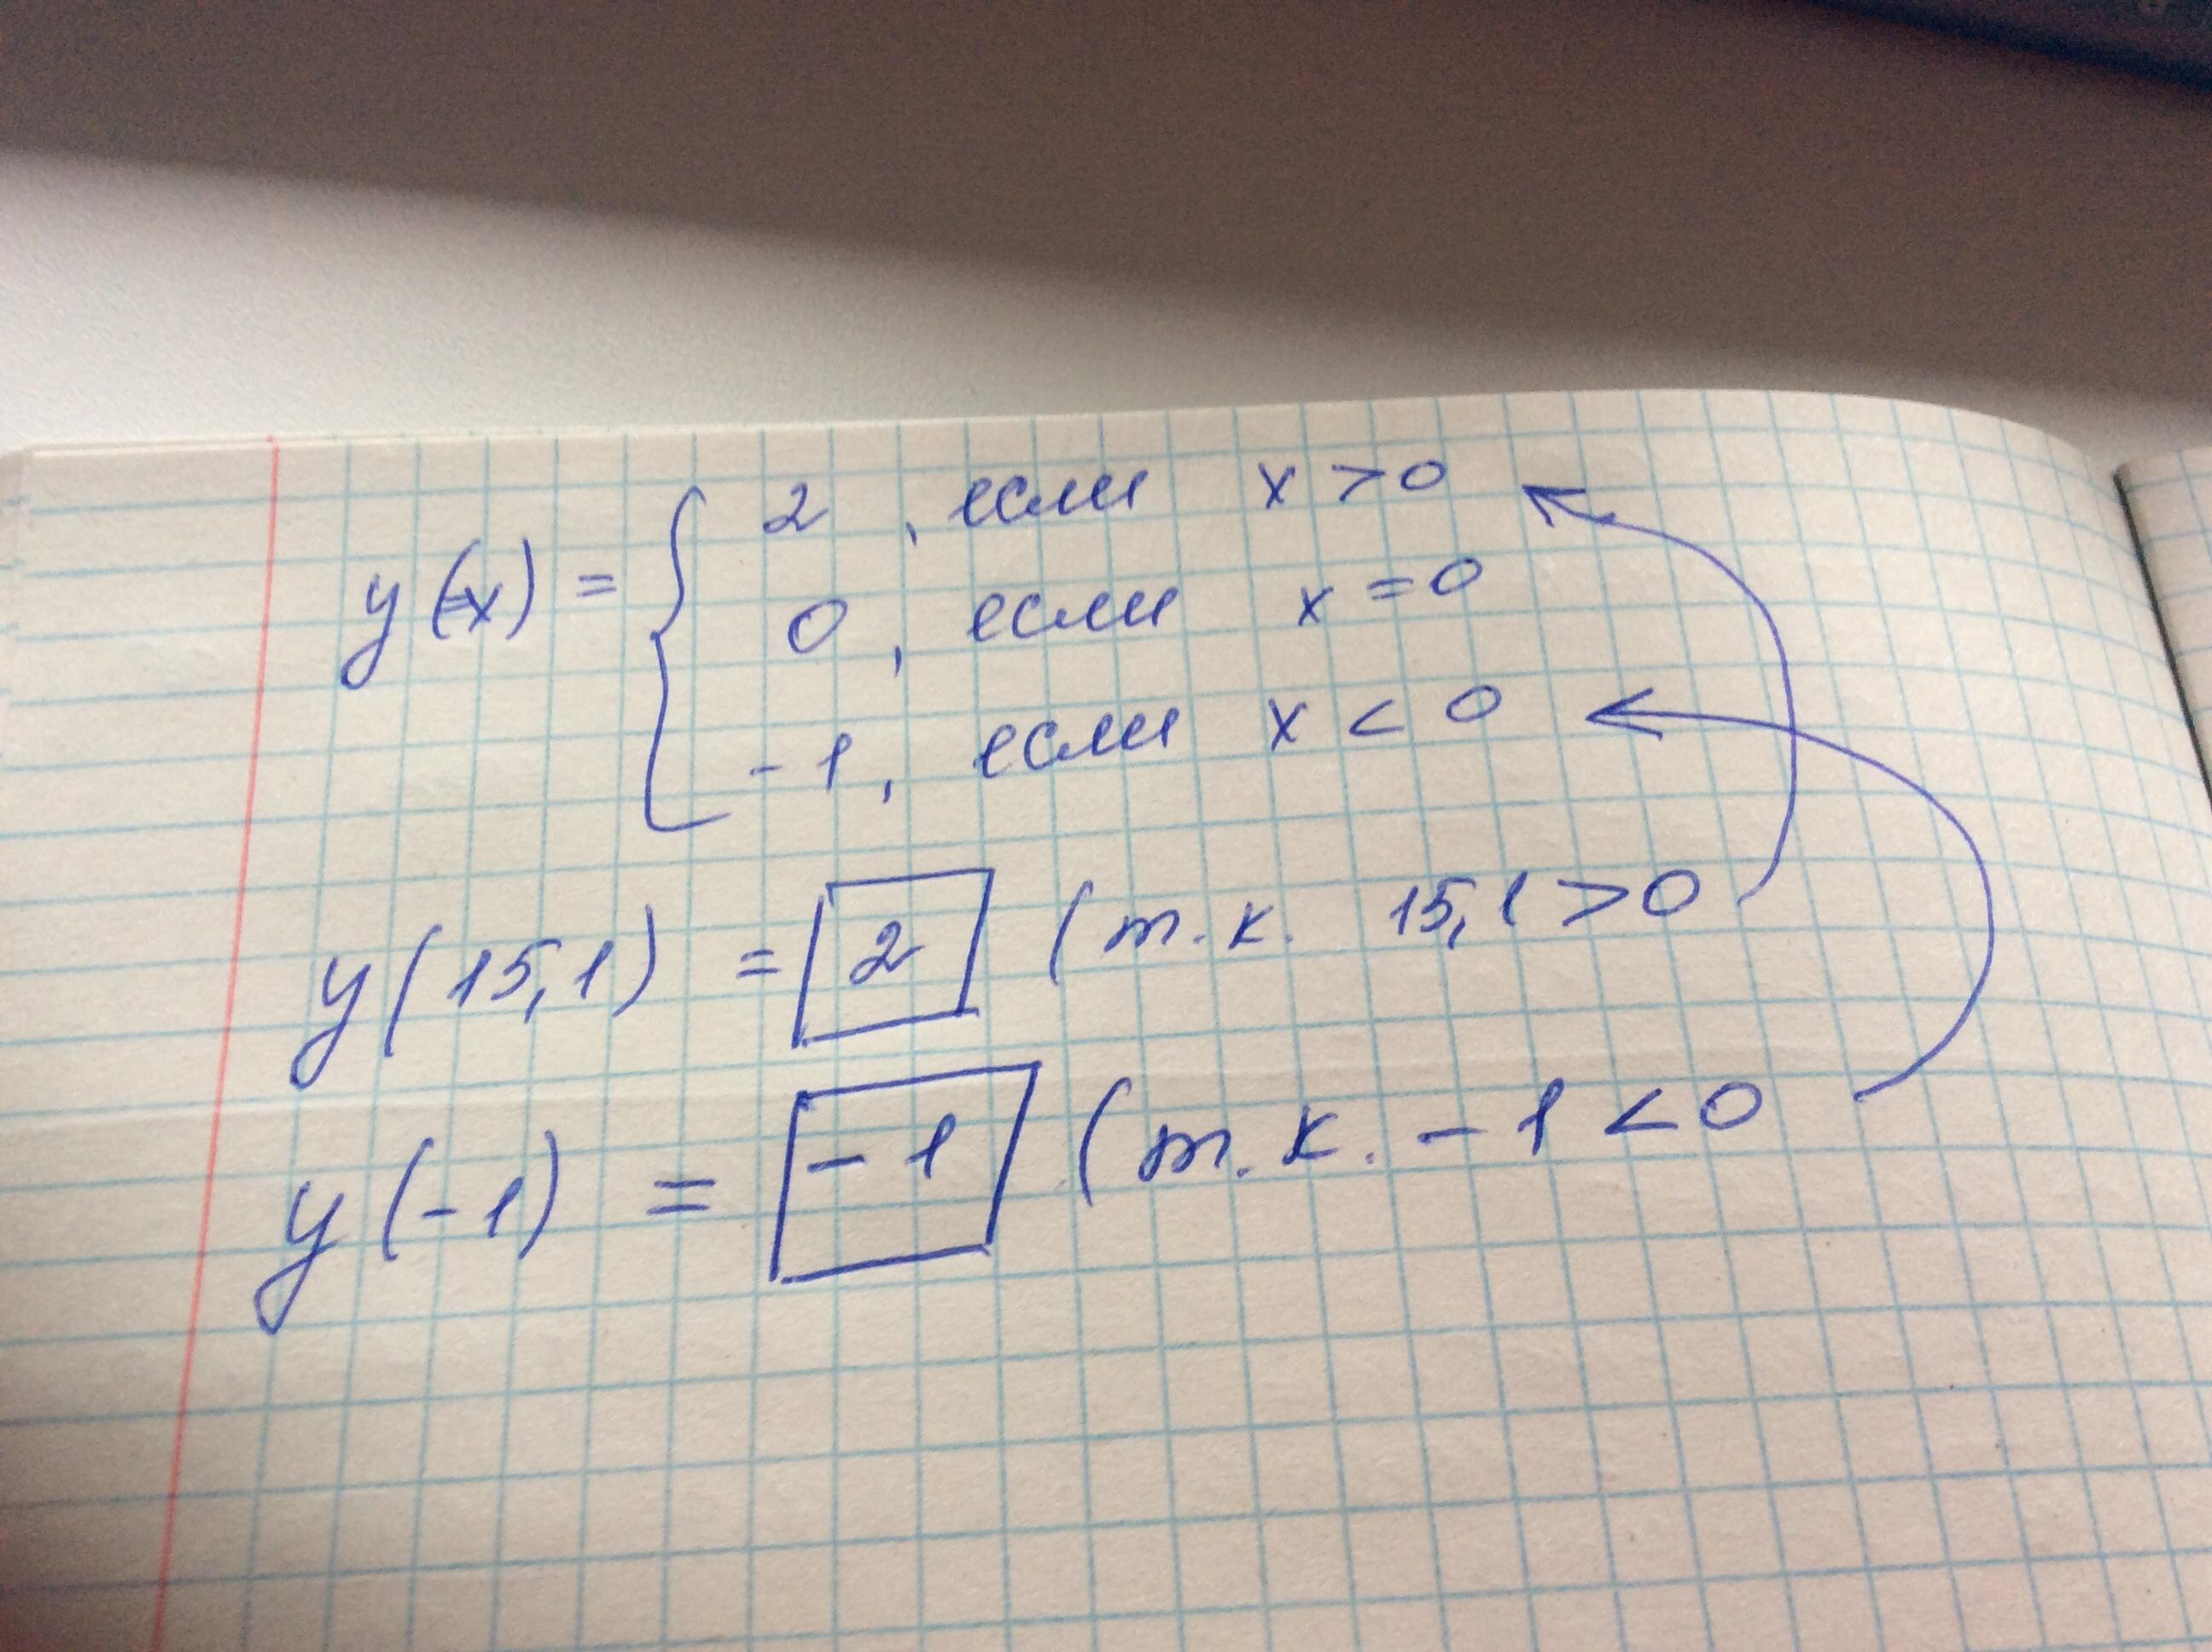 y(x) = { 2, если x > 0
0, если x = 0
-1, если x < 0
y(15,1) = 2 (т.к. 15,1 > 0
y(-1) = -1 (т.к. -1 < 0